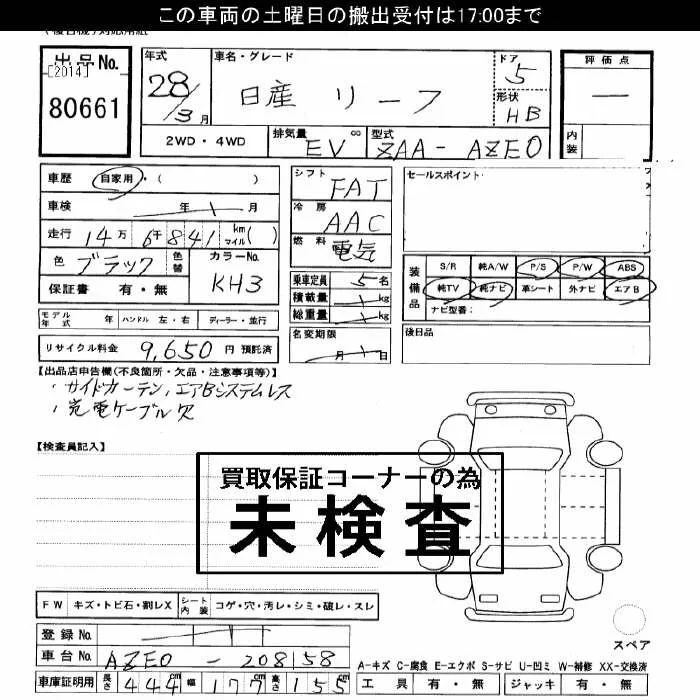 この車両の土曜日の搬出受付は17:00まで
出品No.
[2014]
80661
年式
28/3月
車名・グレード
日産 リーフ
ドア
5
形状
HB
評価点
内装
2WD・4WD
排気量
EV
型式
ZAA-AZE0
車歴 自家用・( )
車検 年 月
走行 14万6千841 km マイル( )
色 ブラック 色替
カラーNo.
KH3
保証書 有・無
シフト
FAT
冷房
AAC
燃料
電気
乗車定員 5名
積載量 kg
総重量 kg
セールスポイント
装備品
S/R 純A/W P/S P/W ABS
純TV 純ナビ 革シート 外ナビ エアB
ナビ型番:
モデル年式 年 ハンドル 左・右 ディーラー・並行
名変期限
月 日
後日品
リサイクル料金 9,650 円 預託済
【出品店申告欄(不良箇所・欠品・注意事項等)】
・サイドカーテン,エアBシステムレス
・充電ケーブル欠
【検査員記入】
買取保証コーナーの為
未検査
FW キズ・トビ石・割レX シート内装 コゲ・穴・汚レ・シミ・破レ・スレ
登録No.
車台No. AZE0-208158
スペア
A-キズ C-腐食 E-エクボ S-サビ U-凹ミ W-補修 XX-交換済
車庫証明用 長さ 444cm 幅 177cm 高さ 155cm
工具 有・無 ジャッキ 有・無